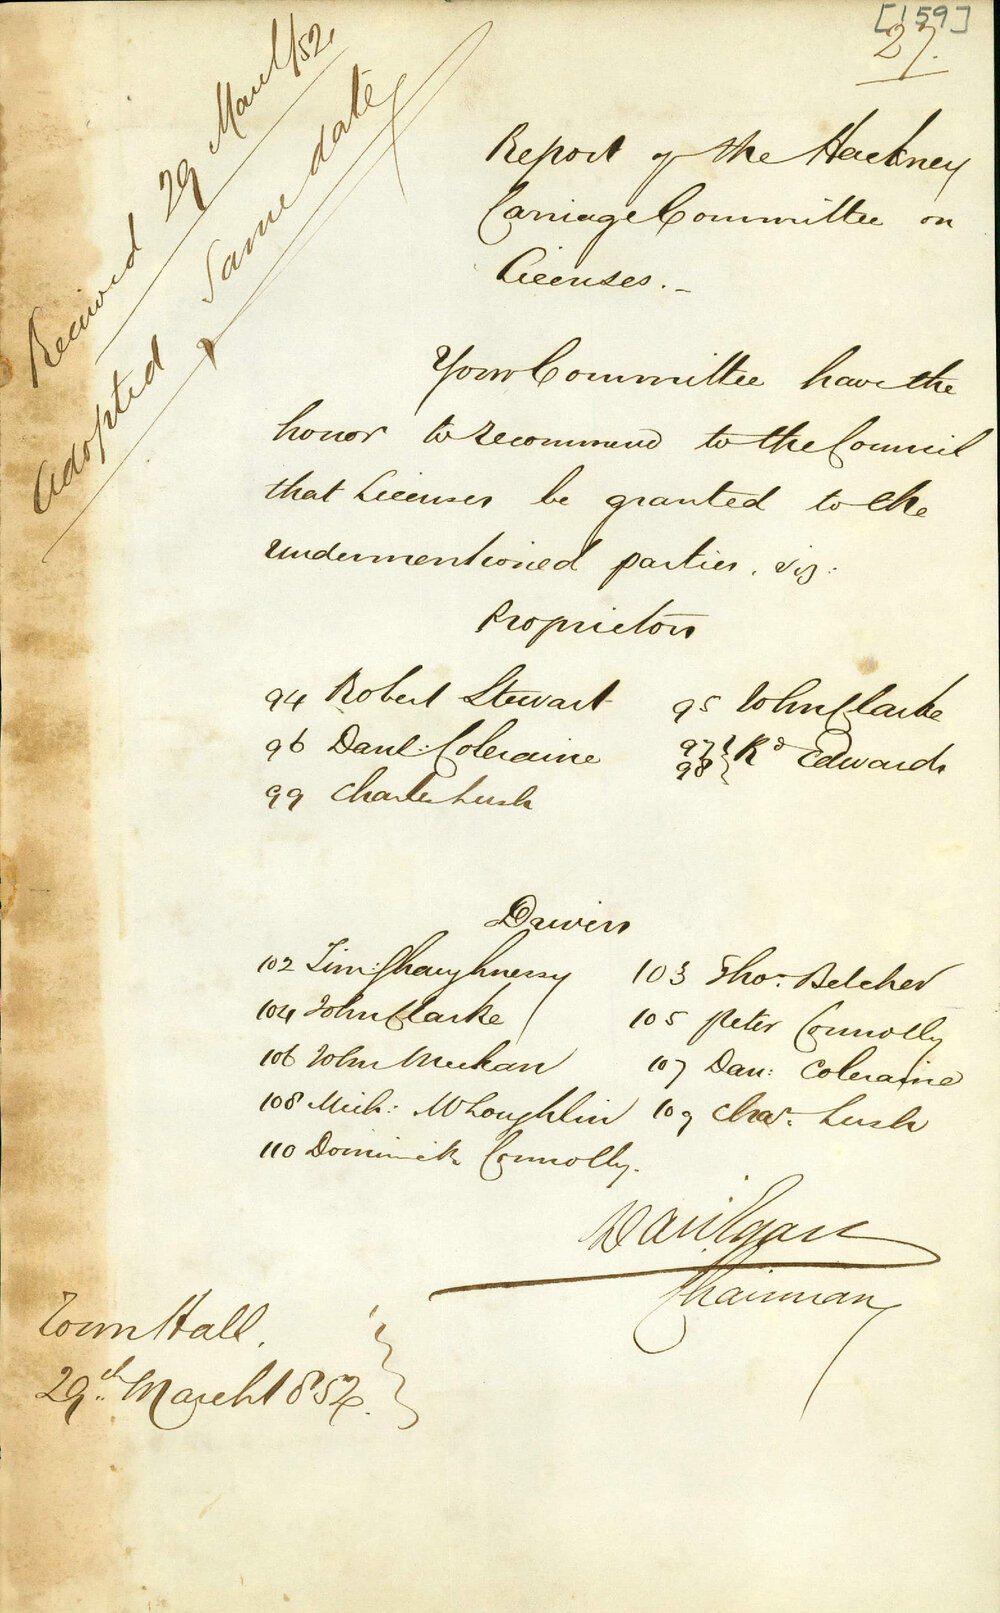 [159]
27.
Received 29 March/52.
Adopted Same date
Report of the Hackney
Carriage Committee on
Licenses.-
Your Committee have the
honor to recommend to the Council
that Licenses be granted to the
undermentioned parties, viz:
Proprietors
94 Robert Stewart 95 John Clarke
96 Danl: Coleraine 97 98 } Rd Edwards
99 Charles Lush
Drivers
102 Tim: Shaughnessy 103 Thos. Belcher
104 John Clarke 105 Peter Connolly
106 John Meehan 107 Dan: Coleraine
108 Mich: McLoughlin 109 Chas. Lush
110 Dominick Connolly.
Danl Egan
Chairman
Town Hall.
29th March 1852.